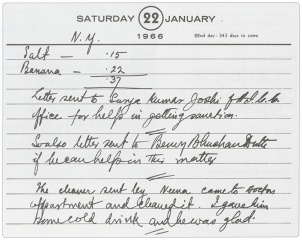 SATURDAY 22 JANUARY
1966
22nd day - 343 days to come
N.Y.
Salt — .15
Banana — .22
.37
Letter sent to Kumar Joshi of
office for help in getting sanction.
So also letter sent to Benoy Bhushan
if he can help in this matter
The cleaner sent by came to
appartment and cleaned it. I gave him
some cold drink and he was glad.